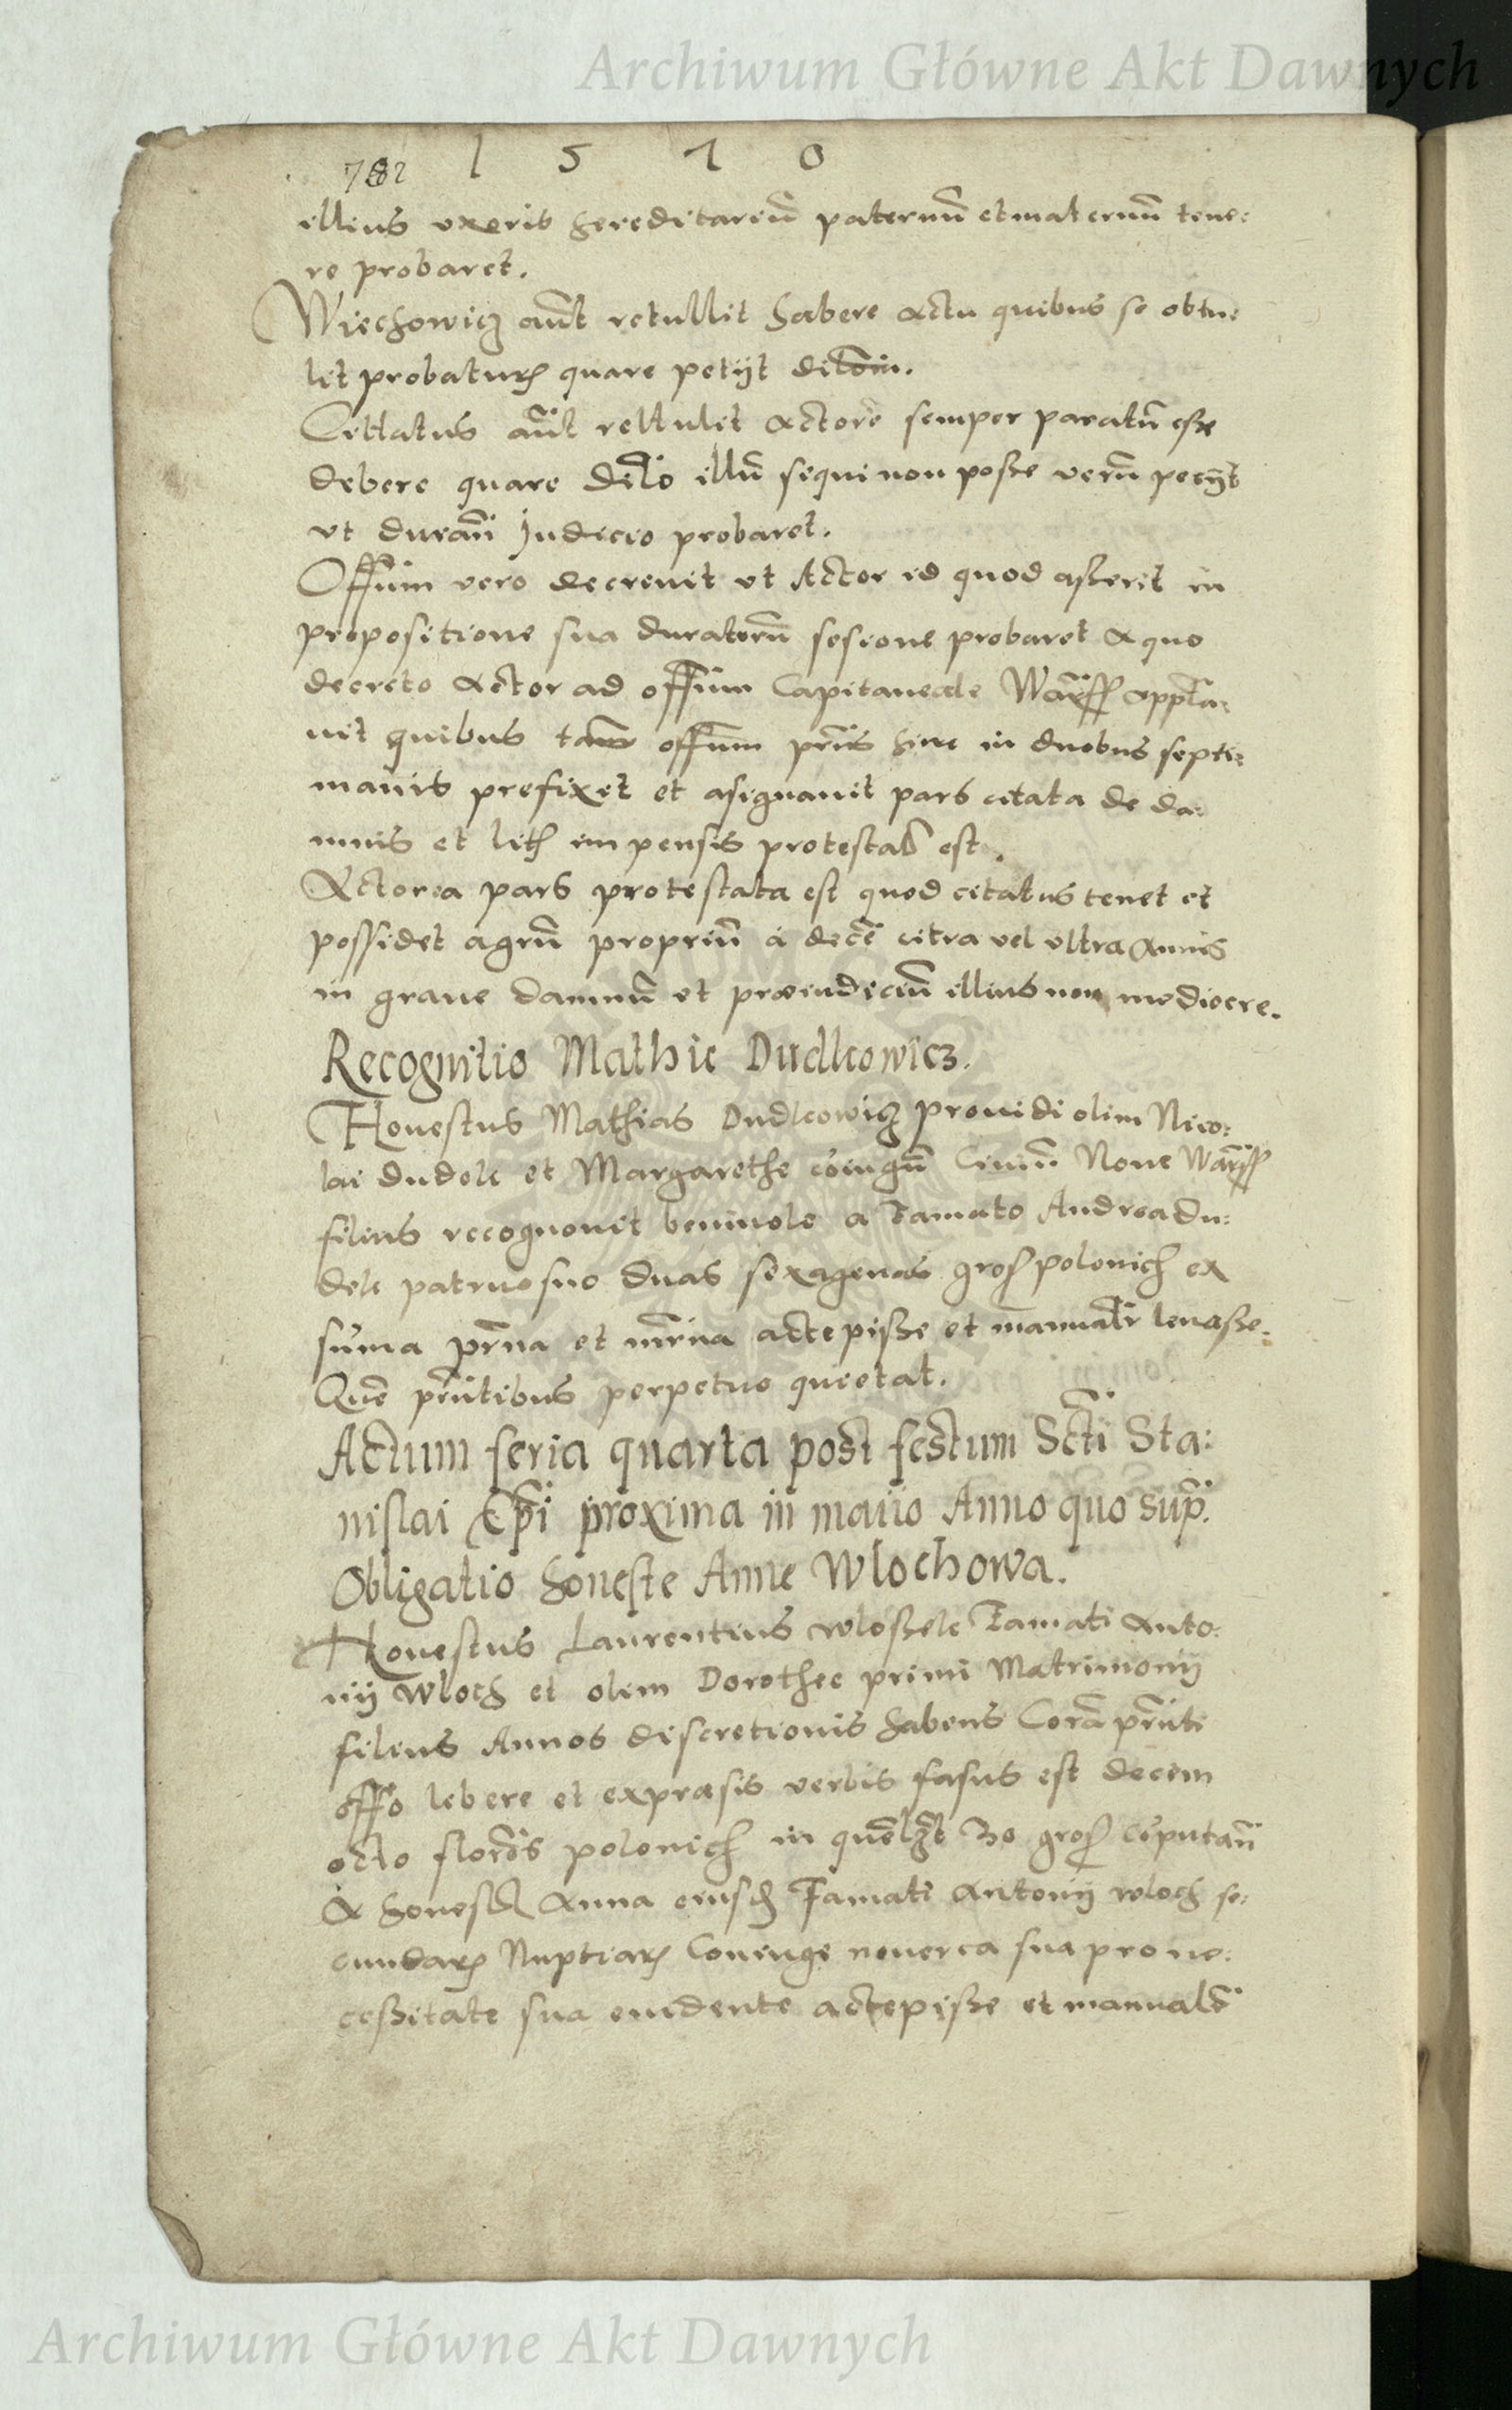 Archiwum Główne Akt Dawnych
782 1 5 7 0
illius uxoris hereditariū paternū et maternū tene:
re probaret.
Wiechowicz aūt retullit habere actu quibus se obtu:
lit probatur quare petijt
Cittatus aūt rettulit Actorē semper paratū esse
debere quare dilō illū sequi non posse verū petijt
ut durañ Judicio probaret.
Offūm vero decrevit ut Actor id quod asserit in
propositione sua duraterū sesione probaret a quo
decreto Actor ad offiūm Capitaneale Warss appla:
vit quibus offiūm prīs hinc in duobus septi:
manis prefixit et asignavit pars citata de da:
mnis et lith impensis protestaō est.
Actorea pars protestata est quod citatus tenet et
possidet agrū propriū a decē citra vel ultra Annis
in grave damnū et præiudiciū illius non mediocre.
Recognitio Mathie Dudkowicz.
Honestus Mathias Dudkowicz providi olim Nico:
lai dudek et Margarethe coiugū Civiū Nove Warss
filius recognovit benivole a Famato Andrea du:
dek patruo suo duas sexagenas gros polonich ex
sūma pr̄na et mr̄na accepisse et manualr̄ levasse.
Quē pr̄ntibus perpetuo quietat.
Actum feria quarta post festum Scti Sta:
nislai Ep̄i proxima in maiio Anno quo sup.
Obligatio honeste Anne Wlochowa.
Honestus Laurentius wloszek Famati Anto:
nij Wloch et olim Dorothee primi Matrimonij
filius Annos discretionis habens Corā pr̄nti
offo libere et expræsis verbis fasus est decem
octo florēs polonich in quēlzt 30 gros cōputañ
A honesta Anna eiusd Famati Antonij wloch se:
cundar Nuptiar Coniuge noverca sua pro ne:
cessitate sua evidente accepisse et manualr̄
Archiwum Główne Akt Dawnych